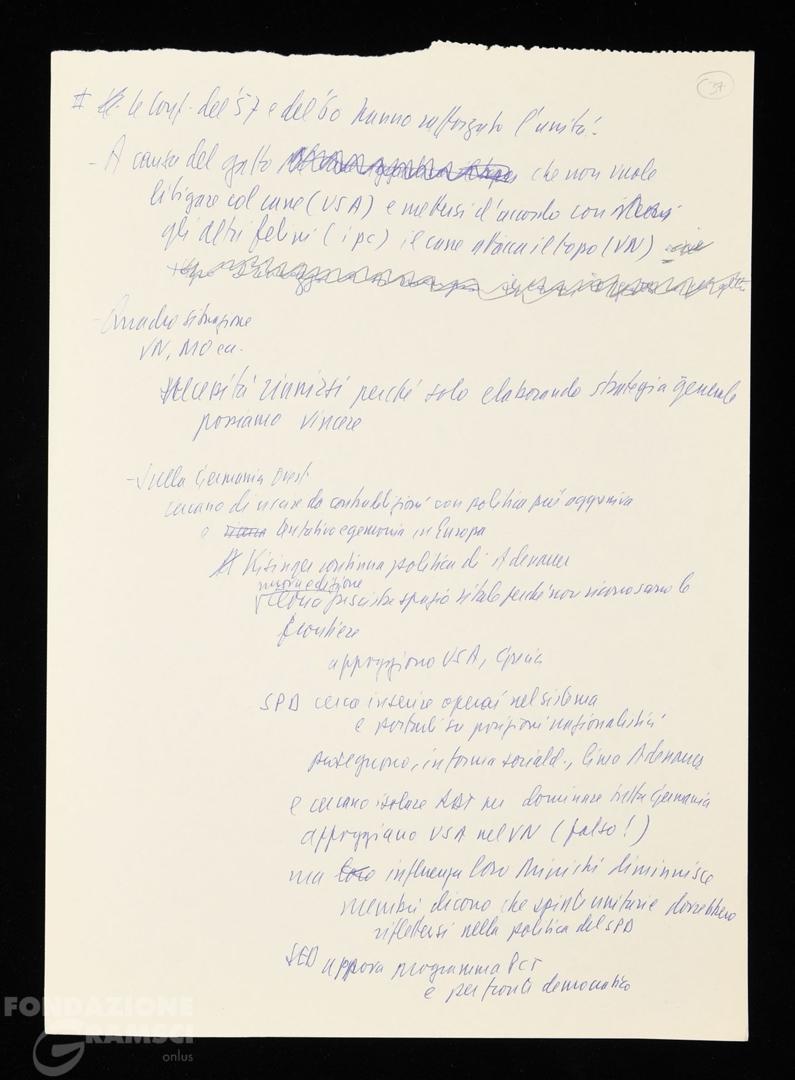 37
# le conf. del '57 e del '60 hanno rafforzato l'unità.
- A causa del gatto che non vuole
litigare col cane (USA) e mettersi d'accordo con
gli altri felini (i pc) il cane attacca il topo (VN)
- Quadro situazione
VN, MO ecc.
necessità riunirsi perché solo elaborando strategia generale
possiamo vincere
- Sulla Germania Ovest
cercano di uscire da contraddizioni con politica più aggressiva
e tentativo egemonia in Europa
Kisinger continua politica di Adenauer
nuova edizione
teoria fascista spazio vitale perché non riconoscano le
frontiere
appoggiano USA, Grecia
SPD cerca inserire operai nel sistema
e portarli su posizioni nazionalistich
perseguono, in forma sociald., linea Adenauer
e cercano isolare DDT per dominare tutta Germania
appoggiano USA nel VN (falso!)
ma influenza loro Ministri diminuisce
membri dicono che spinte unitarie dovrebbero
riflettersi nella politica del SPD
SED appova programma PCT
e per fronte democratico
FONDAZIONE
GRAMSCI
onlus